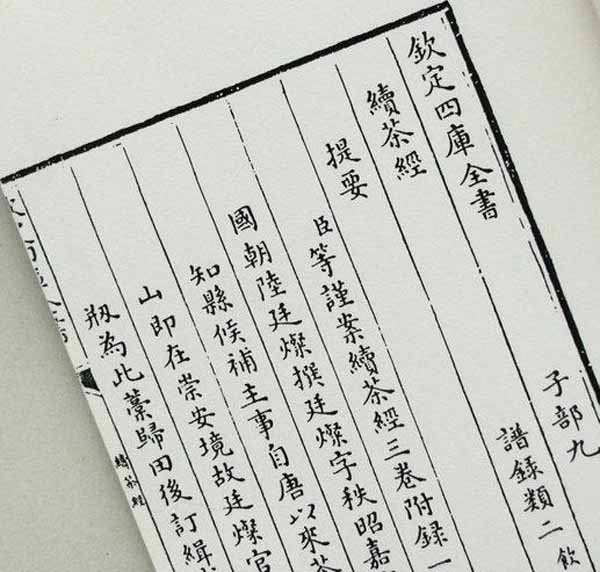 欽定四庫全書 子部九
續茶經 譜錄類二 飲
提要
臣等謹案續茶經三卷附錄一
國朝陸廷燦撰廷燦字秩昭嘉
知縣候補主事自唐以來茶
山即在崇安境故廷燦官
剏為此藁歸田後訂緝
續茶經